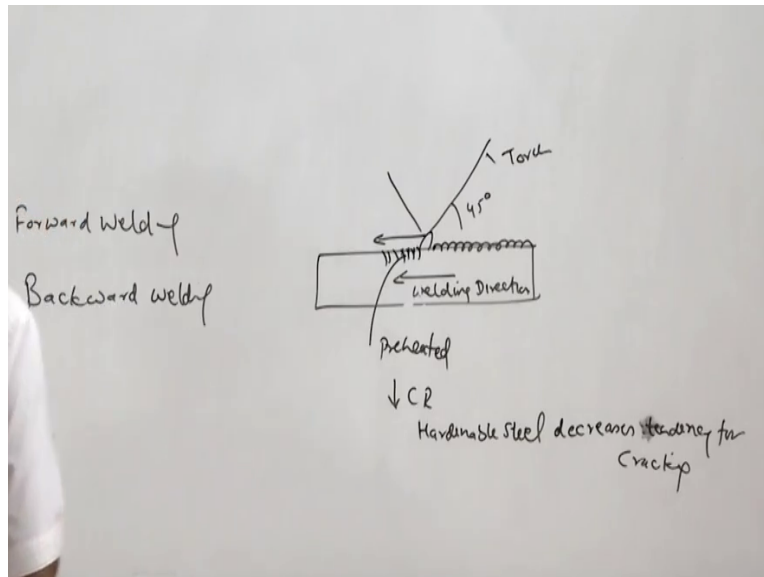 Torch
45°
Forward Welding
Backward Welding
Welding Direction
Preheated
↓ CR
Hardenable Steel decreases tendency for
Cracking